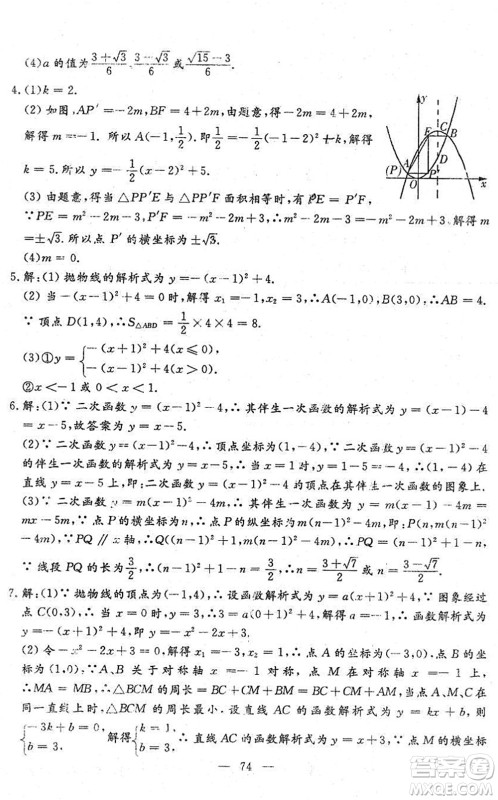 (4)a 的值为 (3+√3)/6、(3-√3)/6 或 (√15-3)/6.
4.(1)k=2.
(2) 如图, AP′=-2m, BF=4+2m, 由题意, 得 -2m=4+2m,
解得 m=-1. 所以 A(-1, 1/2). 即 1/2=-(-1-2)²+1/2 k, 解得
k=5. 所以抛物线的解析式为 y=-(x-2)²+5.
(3) 由题意, 得当 △PP′E 与 △PP′F 面积相等时, 有 P′E=P′F,
∵PE=m²-2m-3, P′F=-m²-2m+3, ∴m²-2m-3=-m²-2m+3. 解得 m
=±√3. 所以点 P′ 的横坐标为 ±√3.
(4)m=0.
5.解:(1) 抛物线的解析式为 y=-(x-1)²+4.
(2) 当 -(x-1)²+4=0 时, 解得 x₁=-1, x₂=3, ∴A(-1,0), B(3,0), ∴AB=4.
∵顶点 D(1,4), ∴S△ABD=1/2×4×4=8.
(3)①y={-(x+1)²+4(x≤0),
-(x-1)²+4(x>0).
②x<-1 或 0<x<1.
6.解:(1)∵二次函数 y=(x-1)²-4, ∴其伴生一次函数的解析式为 y=(x-1)-4
=x-5. 故答案为: y=x-5.
(2)∵二次函数 y=(x-1)²-4, ∴顶点坐标为 (1,-4), ∵二次函数 y=(x-1)²-4
的伴生一次函数的解析式为 y=x-5, ∴当 x=1 时, y=1-5=-4, ∴(1,-4) 在
直线 y=x-5 上, 即二次函数 y=(x-1)²-4 的顶点在其伴生一次函数的图象上.
(3)∵二次函数 y=m(x-1)²-4m, ∴其伴生一次函数为 y=m(x-1)-4m=
mx-5m, ∵点 P 的横坐标为 n, (n>2), ∴点 P 的纵坐标为 m(n-1)²-4m, 即
P(n, m(n-1)²-4m), ∵PQ∥x 轴, ∴Q((n-1)²+1, m(n-1)²-4m), ∴PQ=(n-1)²+1-n, ∵
线段 PQ 的长为 3/2, ∴(n-1)²+1-n=3/2, ∴n=(3+√7)/2 或 n=(3-√7)/2.
7.解:(1)∵抛物线的顶点为 (-1,4), ∴设函数解析式为 y=a(x+1)²+4, ∵图象经过
点 C(0,3), ∴当 x=0 时, y=3, ∴3=a(0+1)²+4, 解得 a=-1, ∴函数解析式为
y=-(x+1)²+4=-x²-2x+3.
(2) 令 -x²-2x+3=0, 得 x₁=-3, x₂=1, ∴点 A 的坐标为 (-3,0), 点 B 的坐标
为 (1,0). ∵B、A 关于对称轴 x=-1 对称, 点 M 在对称轴 x=-1 上,
∴MA=MB, ∴△BCM 的周长=BC+CM+BM=BC+CM+AM, ∴当 A、M、C 在
同一直线上时, △BCM 的周长最小. 设直线 AC 的函数解析式为 y=kx+b, 则
{-3k+b=0, b=3. 解得 {k=1, b=3. ∴直线 AC 的函数解析式为 y=x+3, ∵点 M 的横坐标
— 74 —